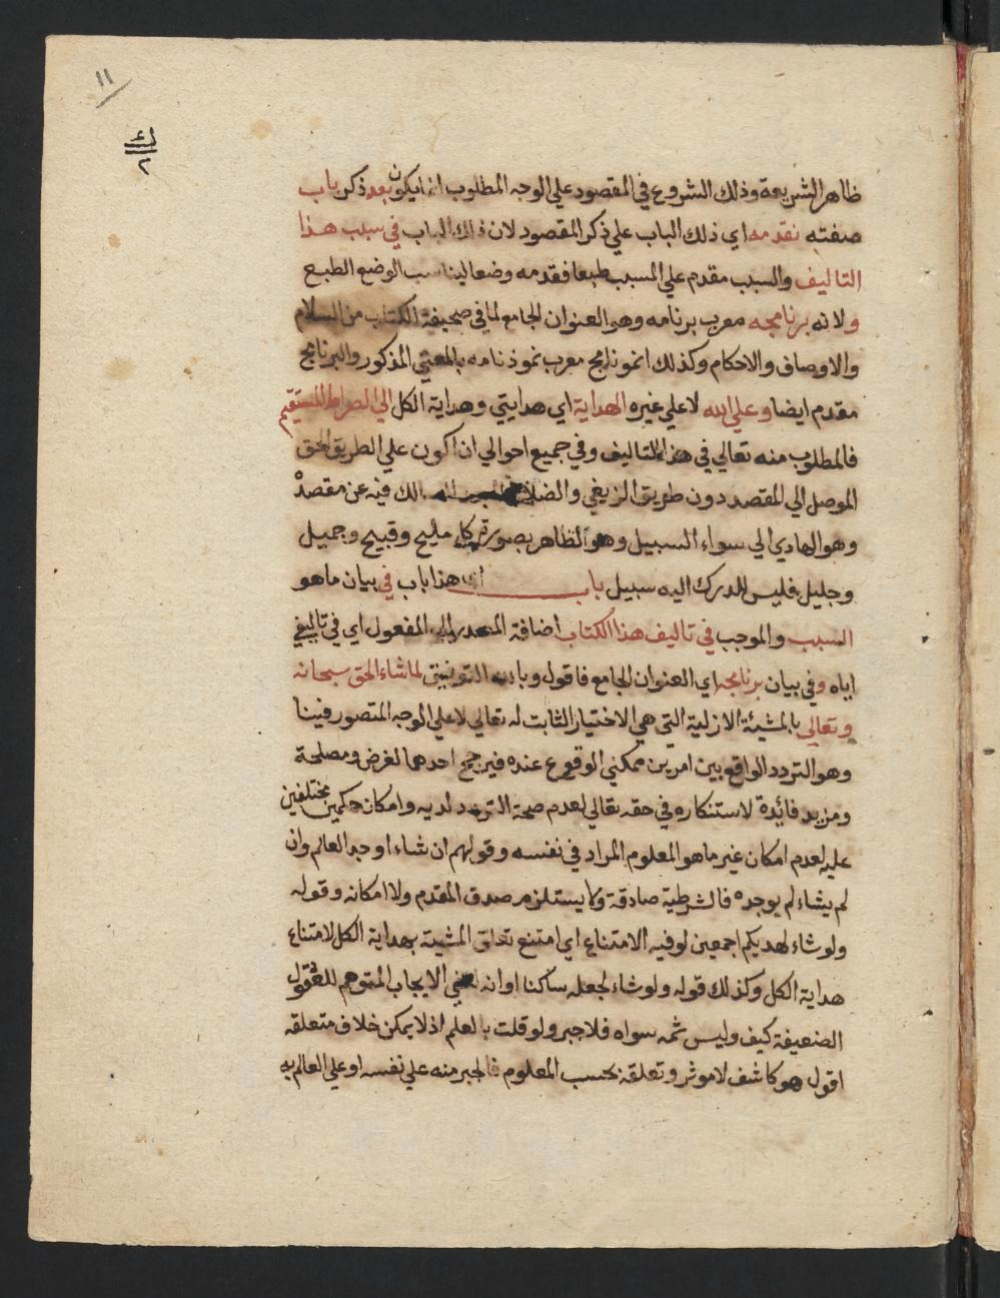 ١١
ك
٢
ظاهر الشريعة وذلك الشروع في المقصود علي الوجه المطلوب انما يكون بعد ذكر باب
صفته نقدمه اي ذلك الباب علي ذكر المقصود لان ذلك الباب في سبب هذا
التاليف والسبب مقدم علي المسبب طبعا فقدمه وضعا ليناسب الوضع الطبع
ولانه برنامجه معرب برنامه وهو العنوان الجامع لما في صحيفة الكتاب من السلام
والاوصاف والاحكام وكذلك انموذامج معرب نموذنامه بالمعني المذكور والبرنامج
مقدم ايضا وعلي الله لا علي غيره الهداية اي هدايتي وهداية الكل الي الصراط المستقيم
فالمطلوب منه تعالي في هذا التاليف وفي جميع احوالي ان اكون علي الطريق الحق
الموصل الي المقصد دون طريق الزيغي والضلال فيه عن مقصد
وهو الهادي الي سواء السبيل وهو الظاهر بصورة كل مليح وقبيح وجميل
وجليل فليس للدرك اليه سبيل باب اي هذا باب في بيان ما هو
السبب والموجب في تاليف هذا الكتاب اضافة المصدر الي المفعول اي في تاليفي
اياه وفي بيان برنامجه اي العنوان الجامع فاقول وبالله التوفيق لما شاء الحق سبحانه
وتعالي بالمشيئة الازلية التي هي الاختيار الثابت له تعالي لا علي الوجه المتصور فينا
وهو التردد الواقع بين امرين ممكني الوقوع عنده فيرجح احدهما لغرض ومصلحة
ومزيد فائدة لاستنكاره في حقه تعالي لعدم صحة التردد لديه وامكان حكمين مختلفين
عليه لعدم امكان غير ما هو المعلوم المراد في نفسه وقولهم ان شاء اوجد العالم وان
لم يشاء لم يوجده فالشرطية صادقة ولا يستلزم صدق المقدم ولا امكانه وقوله
ولو شاء لهديكم اجمعين لو فيه الامتناع اي امتنع تعلق المشيئة بهداية الكل لامتناع
هداية الكل وكذلك قوله ولو شاء لجعله ساكنا او انه لنفي الايجاب المتوهم للعقول
الضعيفة كيف وليس ثمه سواه فلا جبر ولو قلت بالعلم اذ لا يمكن خلاف متعلقه
اقول هو كاشف لا موثر وتعلقه بحسب المعلوم فالجبر منه علي نفسه او علي العالم به